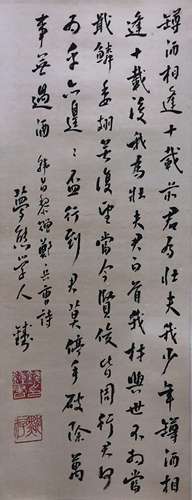 罇酒相逢十載前君為壯夫我少年罇酒相
逢十載後我為壯夫君白首我材與世不相當
戢鱗委翅無復望當今賢俊皆周行君何
為乎亦遑〻盃行到君莫停手破除萬
事無過酒 韓昌黎贈鄭兵曹詩
學人